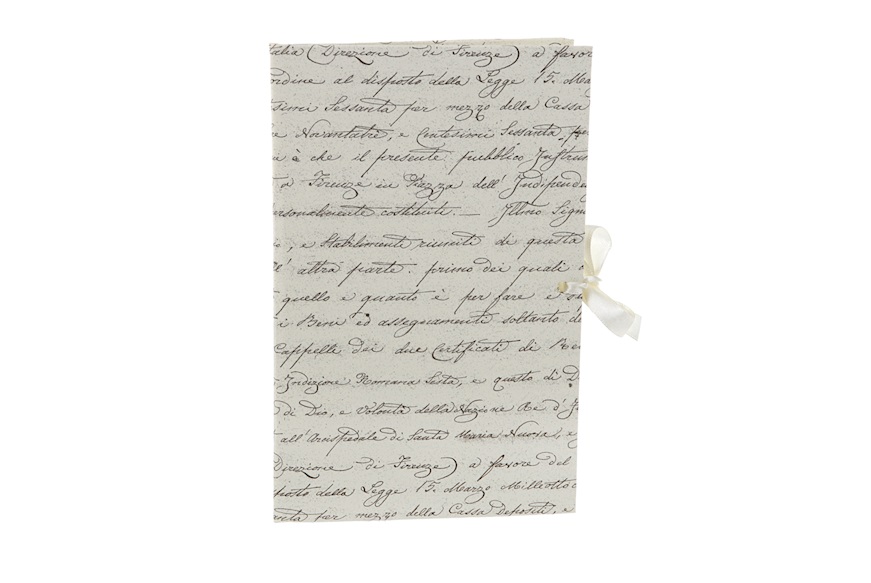 talia (Direzione di Firenze) a favore
ordine al disposto della Legge 15. Mar
simi Sessanta per mezzo della Cassa
e Novantatre, e Centesimi Sessanta, per
a è che il presente pubblico Instrum
a Firenze in Piazza dell' Independen
personalmente costituiti. — Illmo Sign
io, e Stabilimenti riuniti di questa
ll' altra parte. primo dei quali
quello e quanto è per fare e
i Beni ed assegnamenti soltanto de
Cappelle dei due Certificati di Re
Indizione Romana Sesta, e questo di D
di Dio, e Volontà della Nazione Re d' I
all' Arcispedale di Santa Maria Nuova, e
Direzione di Firenze) a favore del
sposto della Legge 15. Marzo Milleotto
anta per mezzo della Cassa Depositi, e